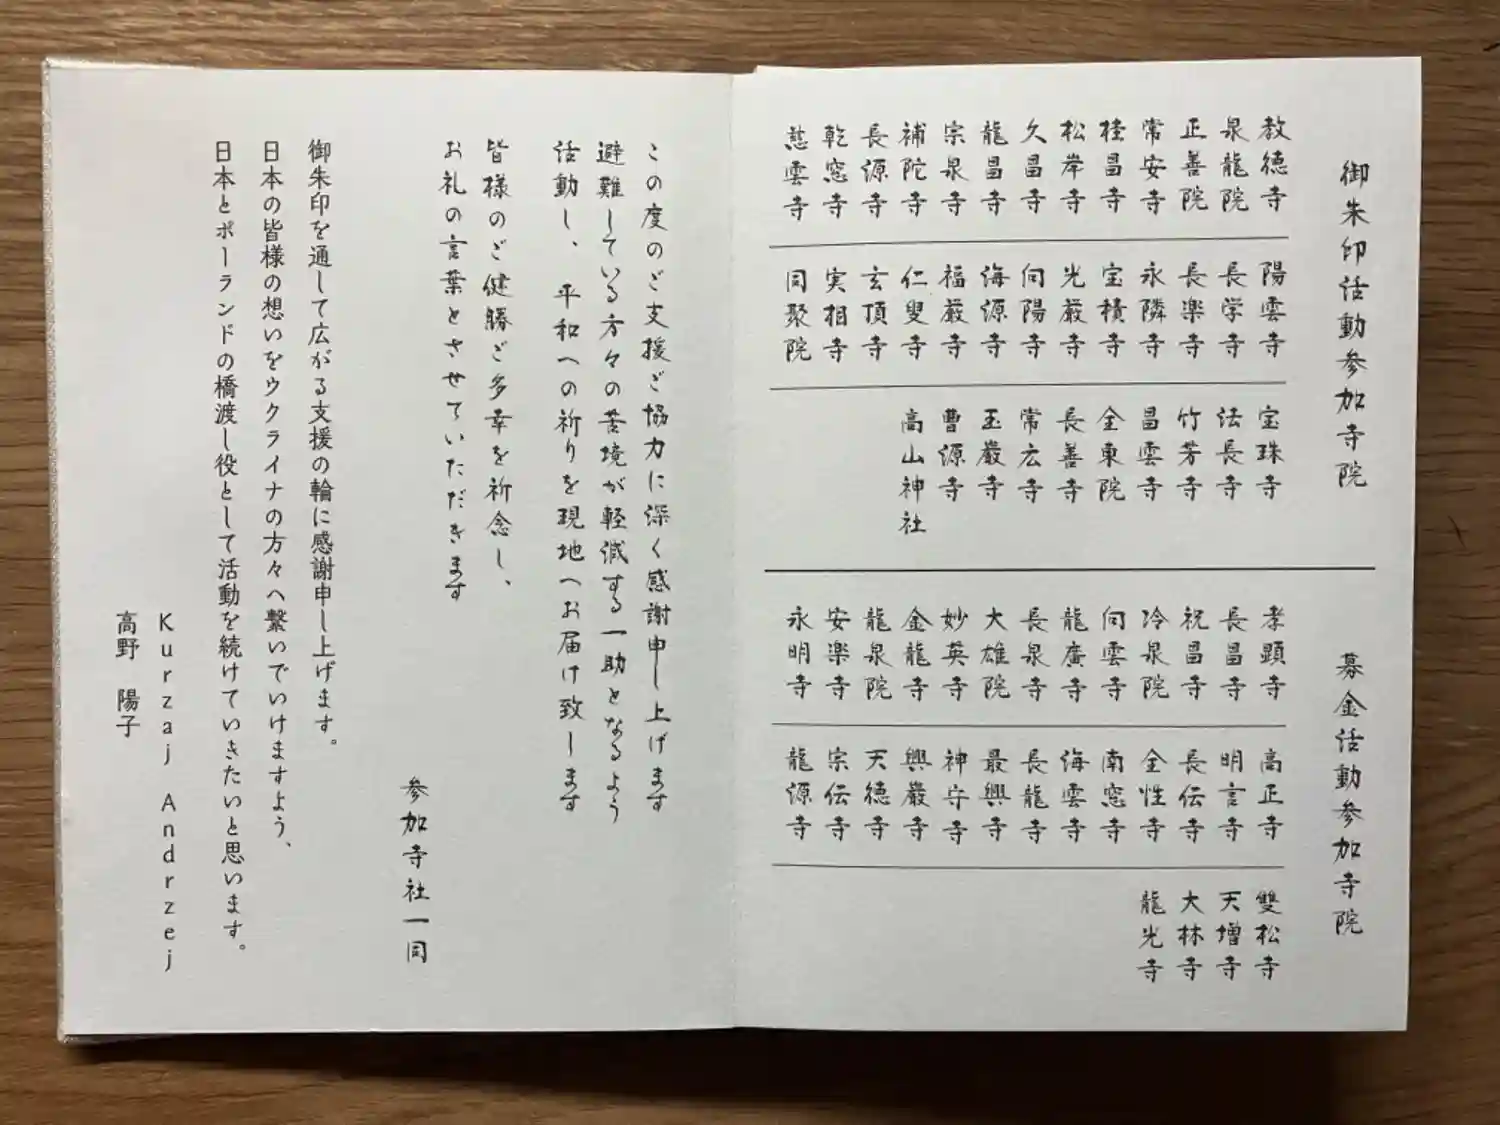 御朱印活動参加寺院
教徳寺
泉龍院
正善院
常安寺
桂昌寺
松岸寺
久昌寺
龍昌寺
宗泉寺
補陀寺
長源寺
乾窓寺
慈雲寺
陽雲寺
長学寺
長楽寺
永隣寺
宝積寺
光巌寺
向陽寺
海源寺
福巌寺
仁叟寺
玄頂寺
実相寺
同聚院
宝珠寺
法長寺
竹芳寺
昌雲寺
全東院
長善寺
常広寺
玉巌寺
曹源寺
高山神社
募金活動参加寺院
孝顕寺
長昌寺
祝昌寺
冷泉院
向雲寺
龍廣寺
長泉寺
大雄院
妙英寺
金龍寺
龍泉院
安楽寺
永明寺
高正寺
明言寺
長伝寺
全性寺
南窓寺
海雲寺
長龍寺
最興寺
神守寺
興巌寺
天徳寺
宗伝寺
龍源寺
雙松寺
天増寺
大林寺
龍光寺
この度のご支援ご協力に深く感謝申し上げます
避難している方々の苦境が軽減する一助となるよう
活動し、平和への祈りを現地へお届け致します
皆様のご健勝ご多幸を祈念し、
お礼の言葉とさせていただきます
参加寺社一同
御朱印を通して広がる支援の輪に感謝申し上げます。
日本の皆様の想いをウクライナの方々へ繋いでいけますよう、
日本とポーランドの橋渡し役として活動を続けていきたいと思います。
Kurzaj Andrzej
高野 陽子